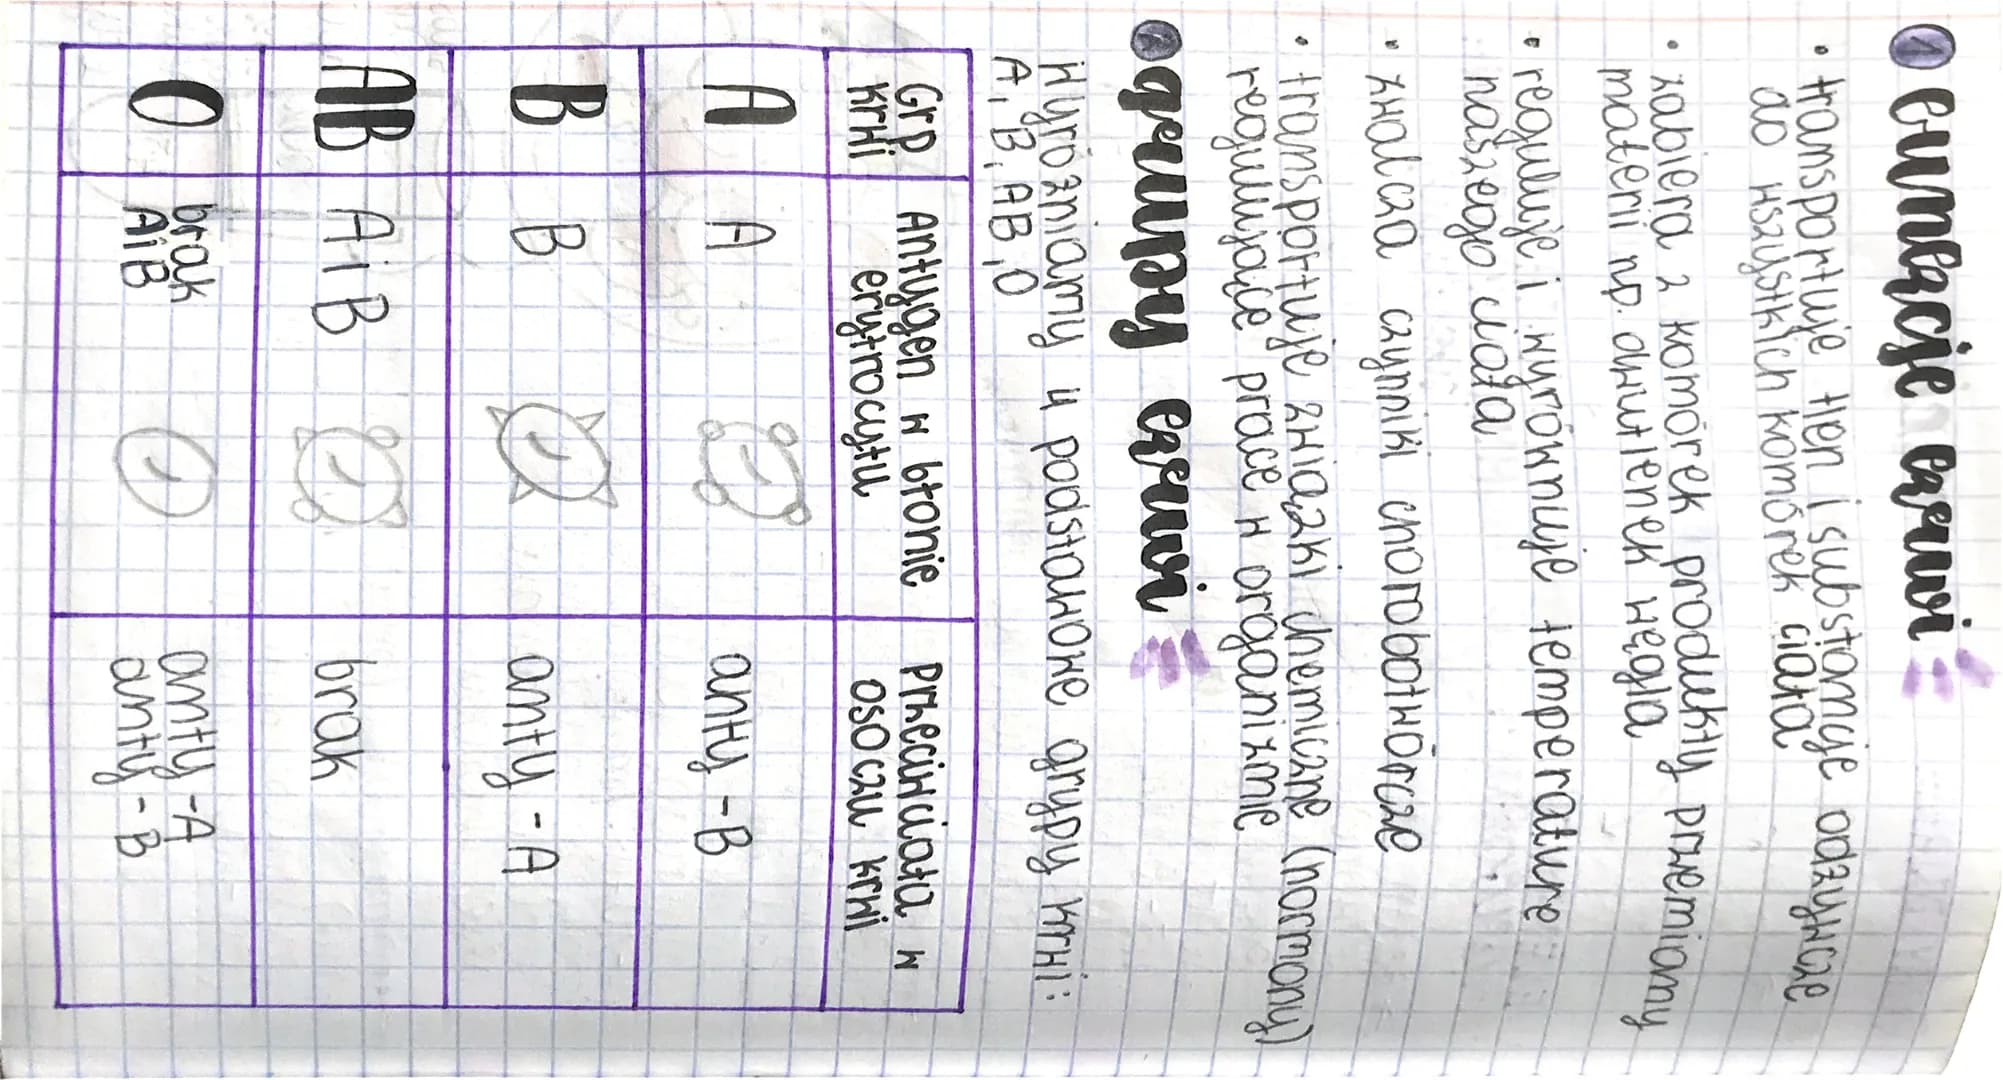 1 funkcje krwi
• transportuje tlen i substancje odżywcze
do wszystkich komórek ciała
• zabiera z komórek produkty przemiany
materii np. dwutlenek węgla
• reguluje i wyrównuje temperaturę
naszego ciała
• zwalcza czynniki chorobotwórcze
• transportuje związki chemiczne (hormony)
regulujące pracę w organizmie
2 grupy krwi
Wyrózniamy 4 podstawowe grupy krwi:
A, B, AB, 0
Grp krwi
Antygen w błonie erytrocytu
Przeciwciała w osoczu krwi
A
A
anty - B
B
B
anty - A
AB
A i B
brak
0
brak
A i B
anty - A
anty - B